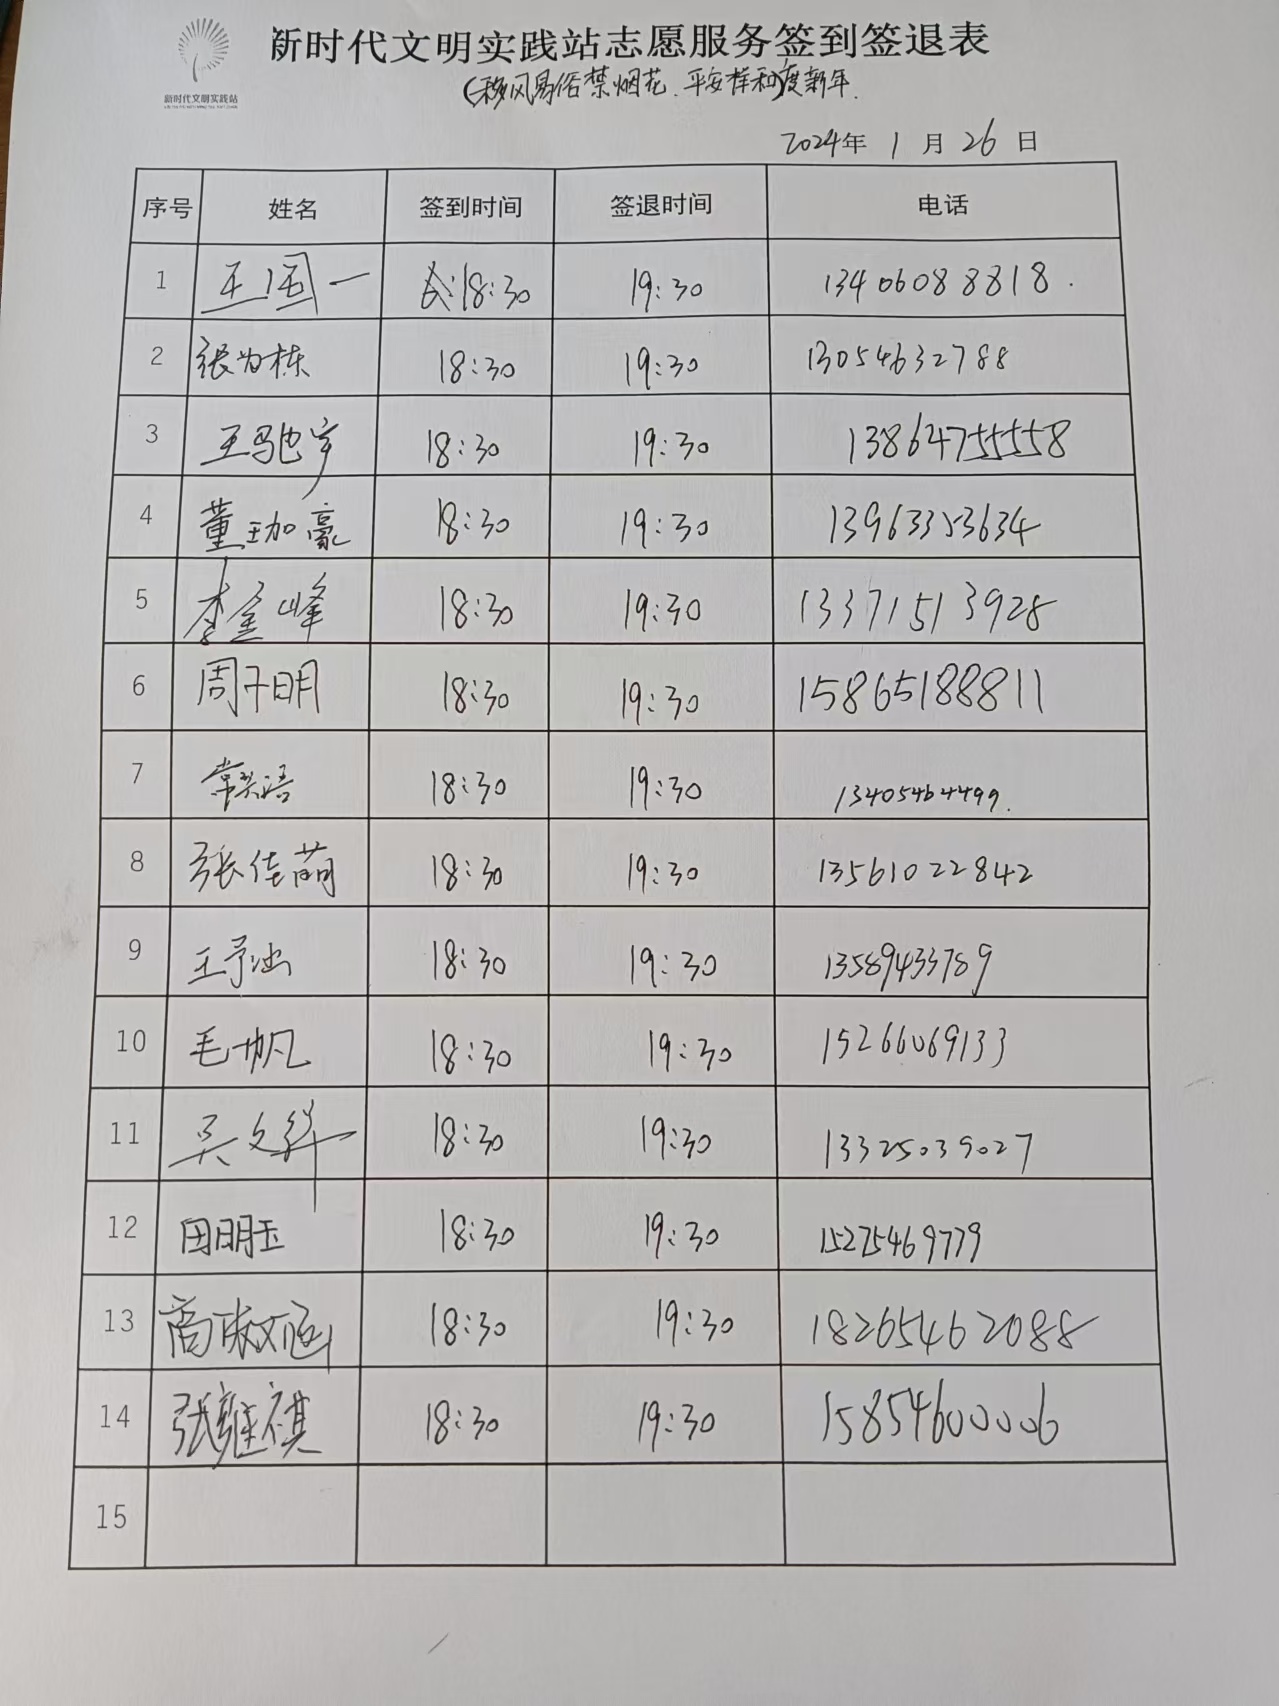 新时代文明实践站志愿服务签到签退表
(移风易俗禁烟花、平安祥和度新年.
新时代文明实践站
2024年 1 月 26 日
序号 姓名 签到时间 签退时间 电话
1 王国一 18:30 19:30 13406088818.
2 张为栋 18:30 19:30 13054632788
3 王驰宇 18:30 19:30 13864755558
4 董珈豪 18:30 19:30 13963353634
5 李金峰 18:30 19:30 13371513928
6 周子明 18:30 19:30 15865188811
7 18:30 19:30 13405464499.
8 张佳萌 18:30 19:30 13561022842
9 王予涵 18:30 19:30 13589433789
10 毛帆 18:30 19:30 15266069133
11 吴文 18:30 19:30 13325039027
12 田明玉 18:30 19:30 15275469779
13 商 18:30 19:30 18265462088
14 张继祺 18:30 19:30 15854600006
15